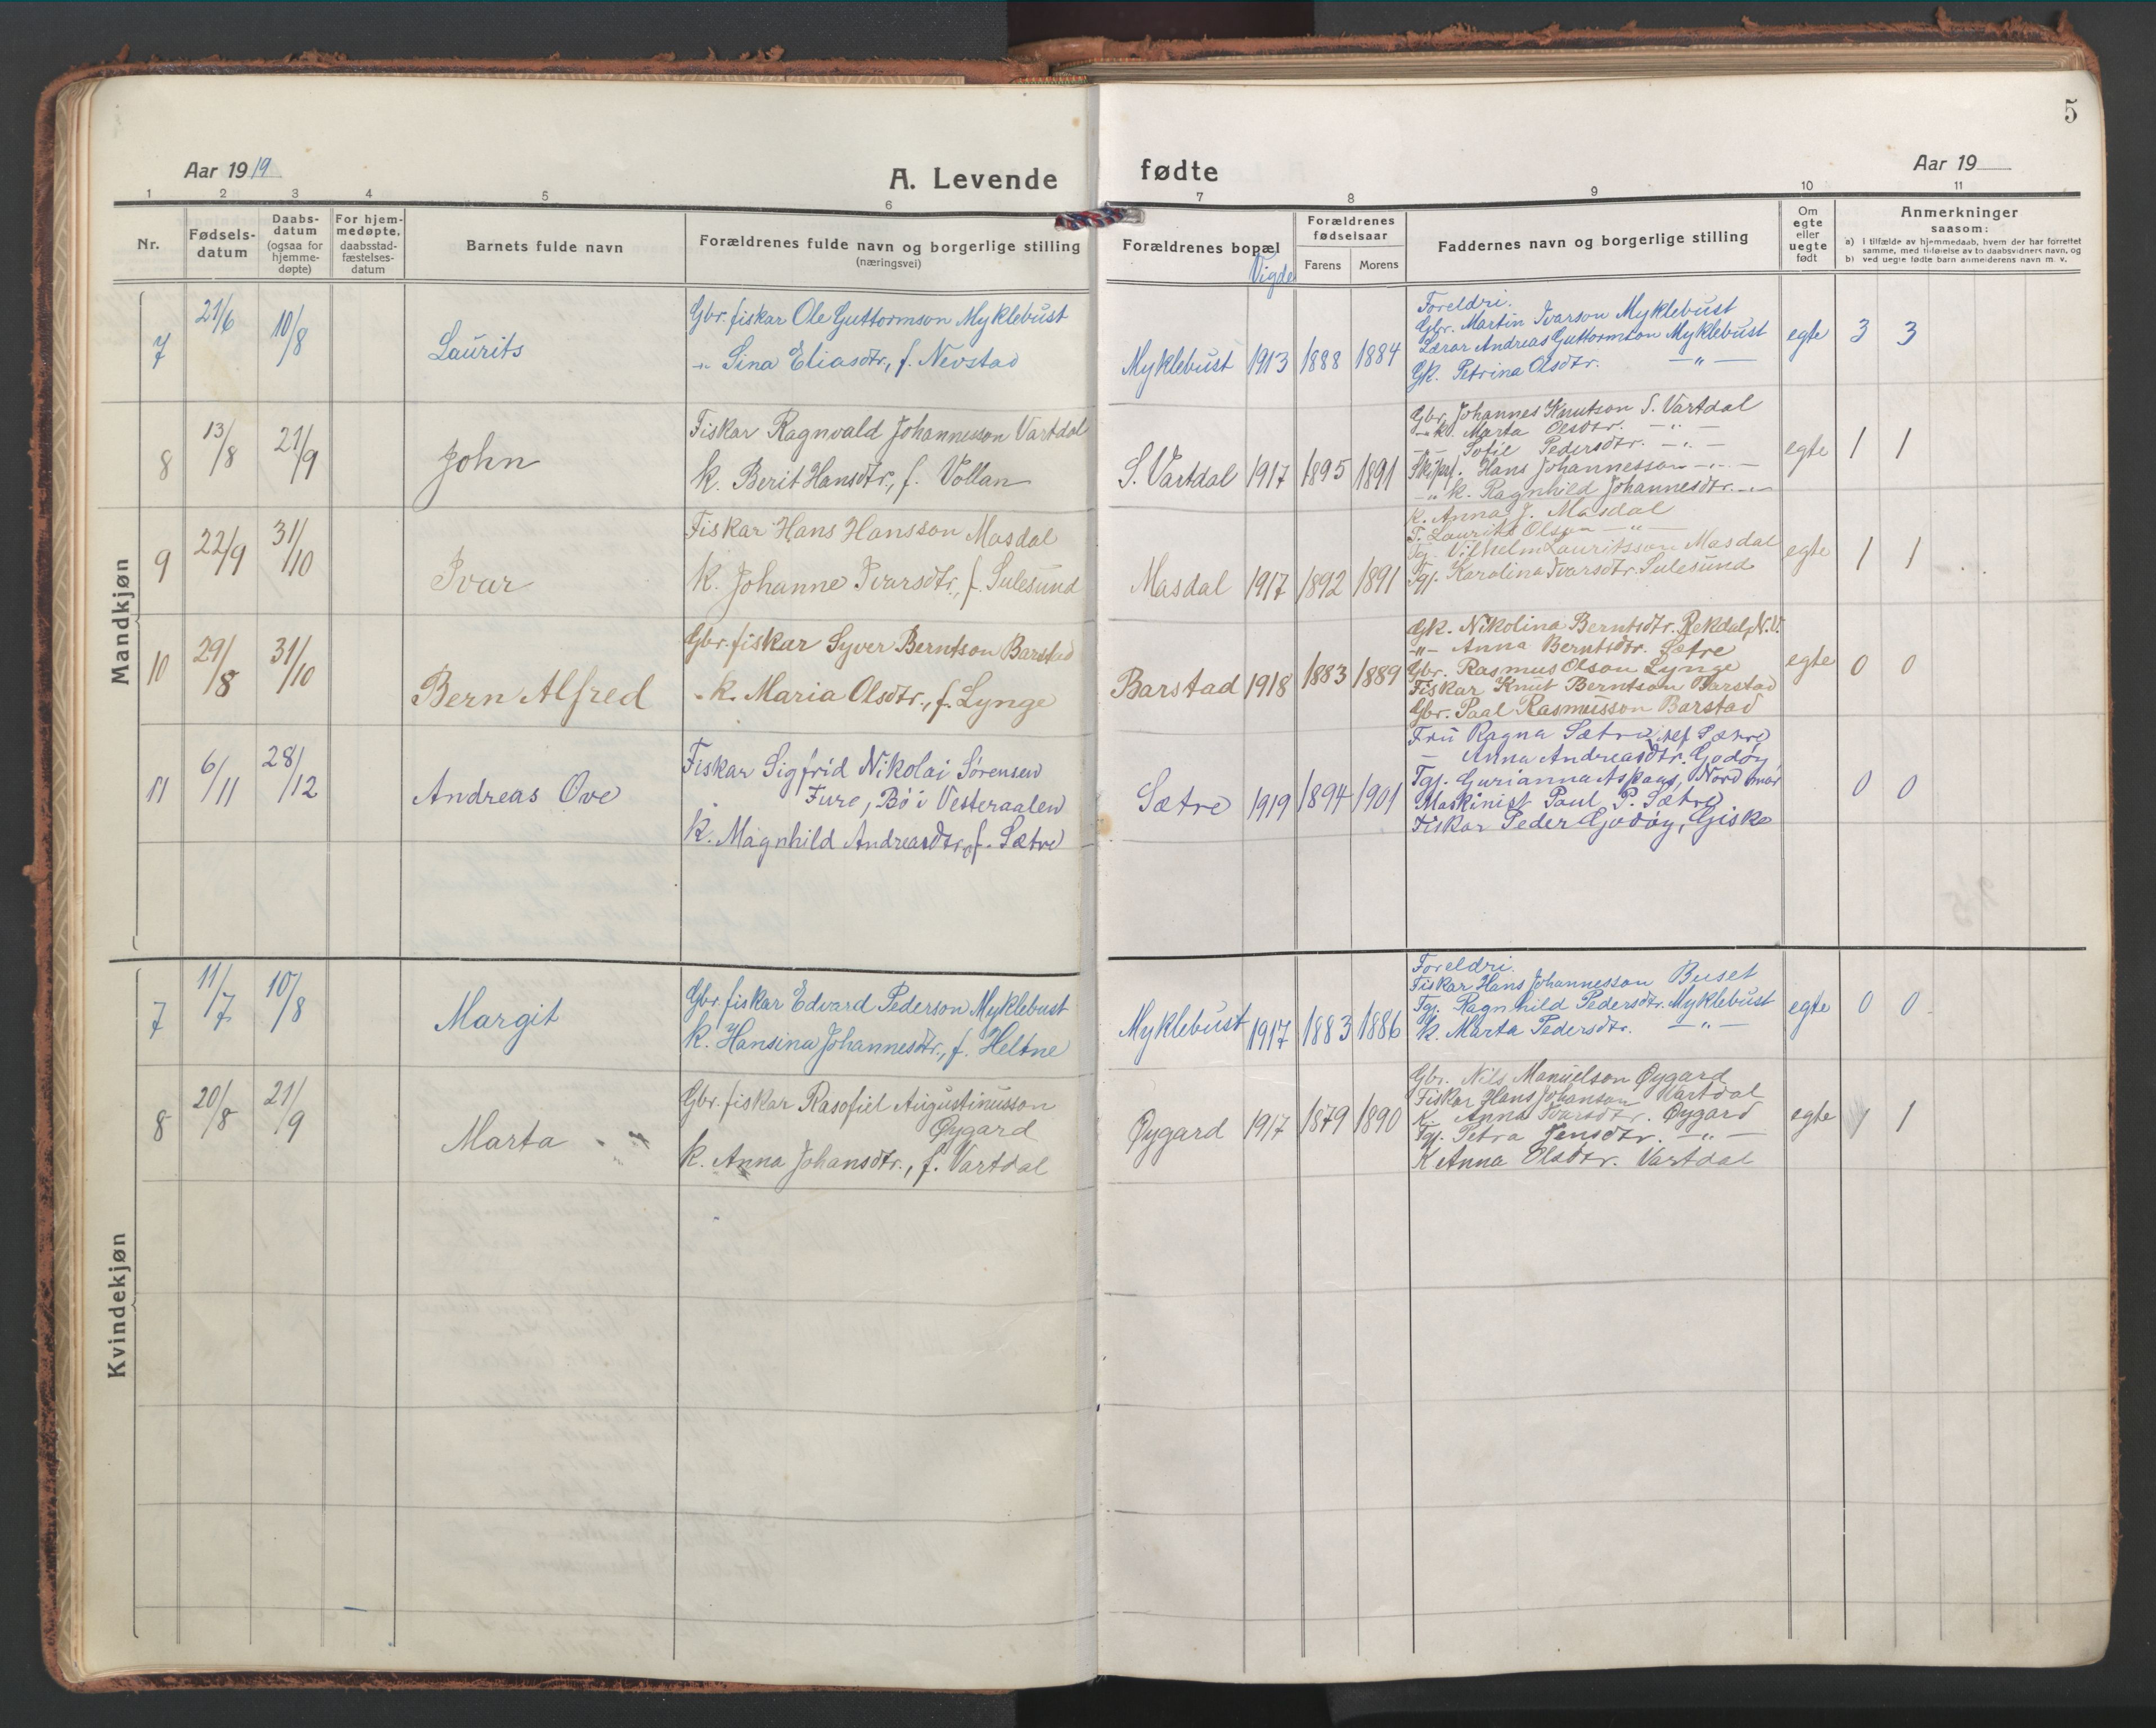 5
Aar 1919
A. Levende fødte
Aar 19
1 2 3 4 5 6 7 8 9 10 11
Nr.
Fødsels-
datum
Daabs-
datum
(ogsaa for
hjemme-
døpte)
For hjem-
medøpte,
daabsstad-
fæstelses-
datum
Barnets fulde navn
Forældrenes fulde navn og borgerlige stilling
(næringsvei)
Forældrenes bopæl
Vigde
Forældrenes
fødselsaar
Farens Morens
Faddernes navn og borgerlige stilling
Om
egte
eller
uegte
født
Anmerkninger
saasom:
a) i tilfælde av hjemmedaab, hvem der har forrettet
samme, med tilføielse av to daabsvidners navn, og
b) ved uegte fødte barn anmelderens navn m. v.
Mandkjøn
7 21/6 10/8 Laurits
Gbr. fiskar Ole Guttormson Myklebust
-"- Sina Eliasdtr., f. Nevstad
Myklebust 1913 1888 1884
Foreldri.
Gbr. Martin Ivarson Myklebust
Lærar Andreas Guttormson Myklebust
Gk. Petrina Olsdtr. —"—
egte 3 3
8 13/8 21/9 John
Fiskar Ragnvald Johannesson Vartdal
K. Berit Hansdtr., f. Vollan
S. Vartdal 1917 1895 1891
Gbr. Johannes Knutson S. Vartdal
-"- k. Marta Olsdtr. —"—
-"- Sofie Pedersdtr. —"—
Skipsf. Hans Johannesson —"—
-"- k. Ragnhild Johannesdtr. —"—
egte 1 1
9 22/9 31/10 Ivar
Fiskar Hans Hansson Masdal
K. Johanne Ivarsdtr., f. Sulesund
Masdal 1917 1892 1891
K. Anna J. Masdal
F. Laurits Olson —"—
Tg. Vilhelm Lauritsson Masdal
Tgj. Karolina Ivarsdtr. Sulesund
egte 1 1
10 29/8 31/10 Bern Alfred
Gbr. fiskar Syver Berntson Barstad
-"- k. Maria Olsdtr., f. Lynge
Barstad 1918 1883 1889
Gk. Nikolina Berntsdtr. Rekdal, N.V.
-"- Anna Berntsdtr. Sætre
Gbr. Rasmus Olson Lynge
Fiskar Knut Berntson Barstad
Gbr. Paal Rasmusson Barstad
egte 0 0
11 6/11 28/12 Andreas Ove
Fiskar Sigfrid Nikolai Sørensen
Fure, Bø i Vesteraalen
K. Magnhild Andreasdtr., f. Sætre
Sætre 1919 1894 1901
Fru Ragna Sætre, Sætre
— Anna Andreasdtr. Godøy
Tgj. Gurianna Aspaas, Nordmør
Maskinist Paul P. Sætre
Fiskar Peder Godøy, Giske
0 0
Kvindekjøn
7 11/7 10/8 Margit
Gbr. fiskar Edvard Pederson Myklebust
K. Hansina Johannesdtr., f. Heltne
Myklebust 1917 1883 1886
Foreldri.
Fiskar Hans Johannesson Buset
Tgj. Ragnhild Pedersdtr. Myklebust
K. Marta Pedersdtr. —"—
egte 0 0
8 20/8 21/9 Marta
Gbr. fiskar Rasofiel Augustinusson
Øygard
K. Anna Johansdtr., f. Vartdal
Øygard 1917 1879 1890
Gbr. Nils Manuelson Øygard
Fiskar Hans Johanson Vartdal
K. Anna Ivarsdtr. Øygard
Tgj. Petra Jensdtr. —"—
K Anna Olsdtr. Vartdal
egte 1 1